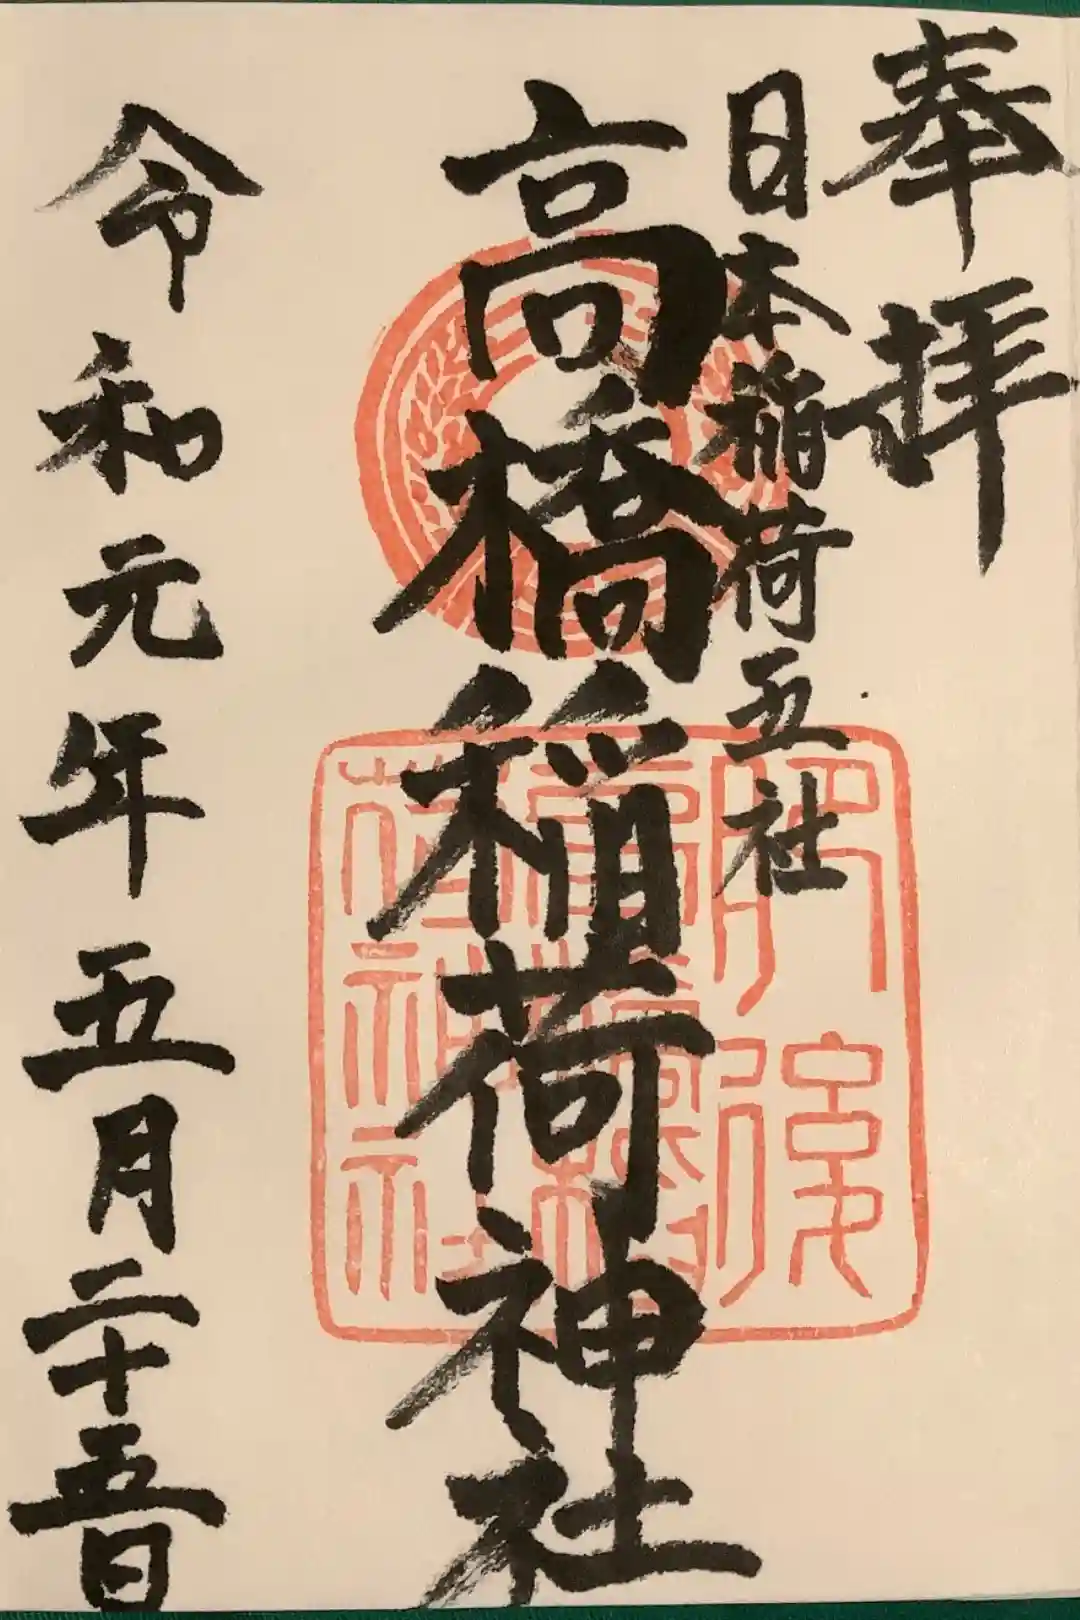 奉拝
日本稲荷五社
高橋稲荷神社
肥後
高橋稲
荷神社
令和元年五月二十五日